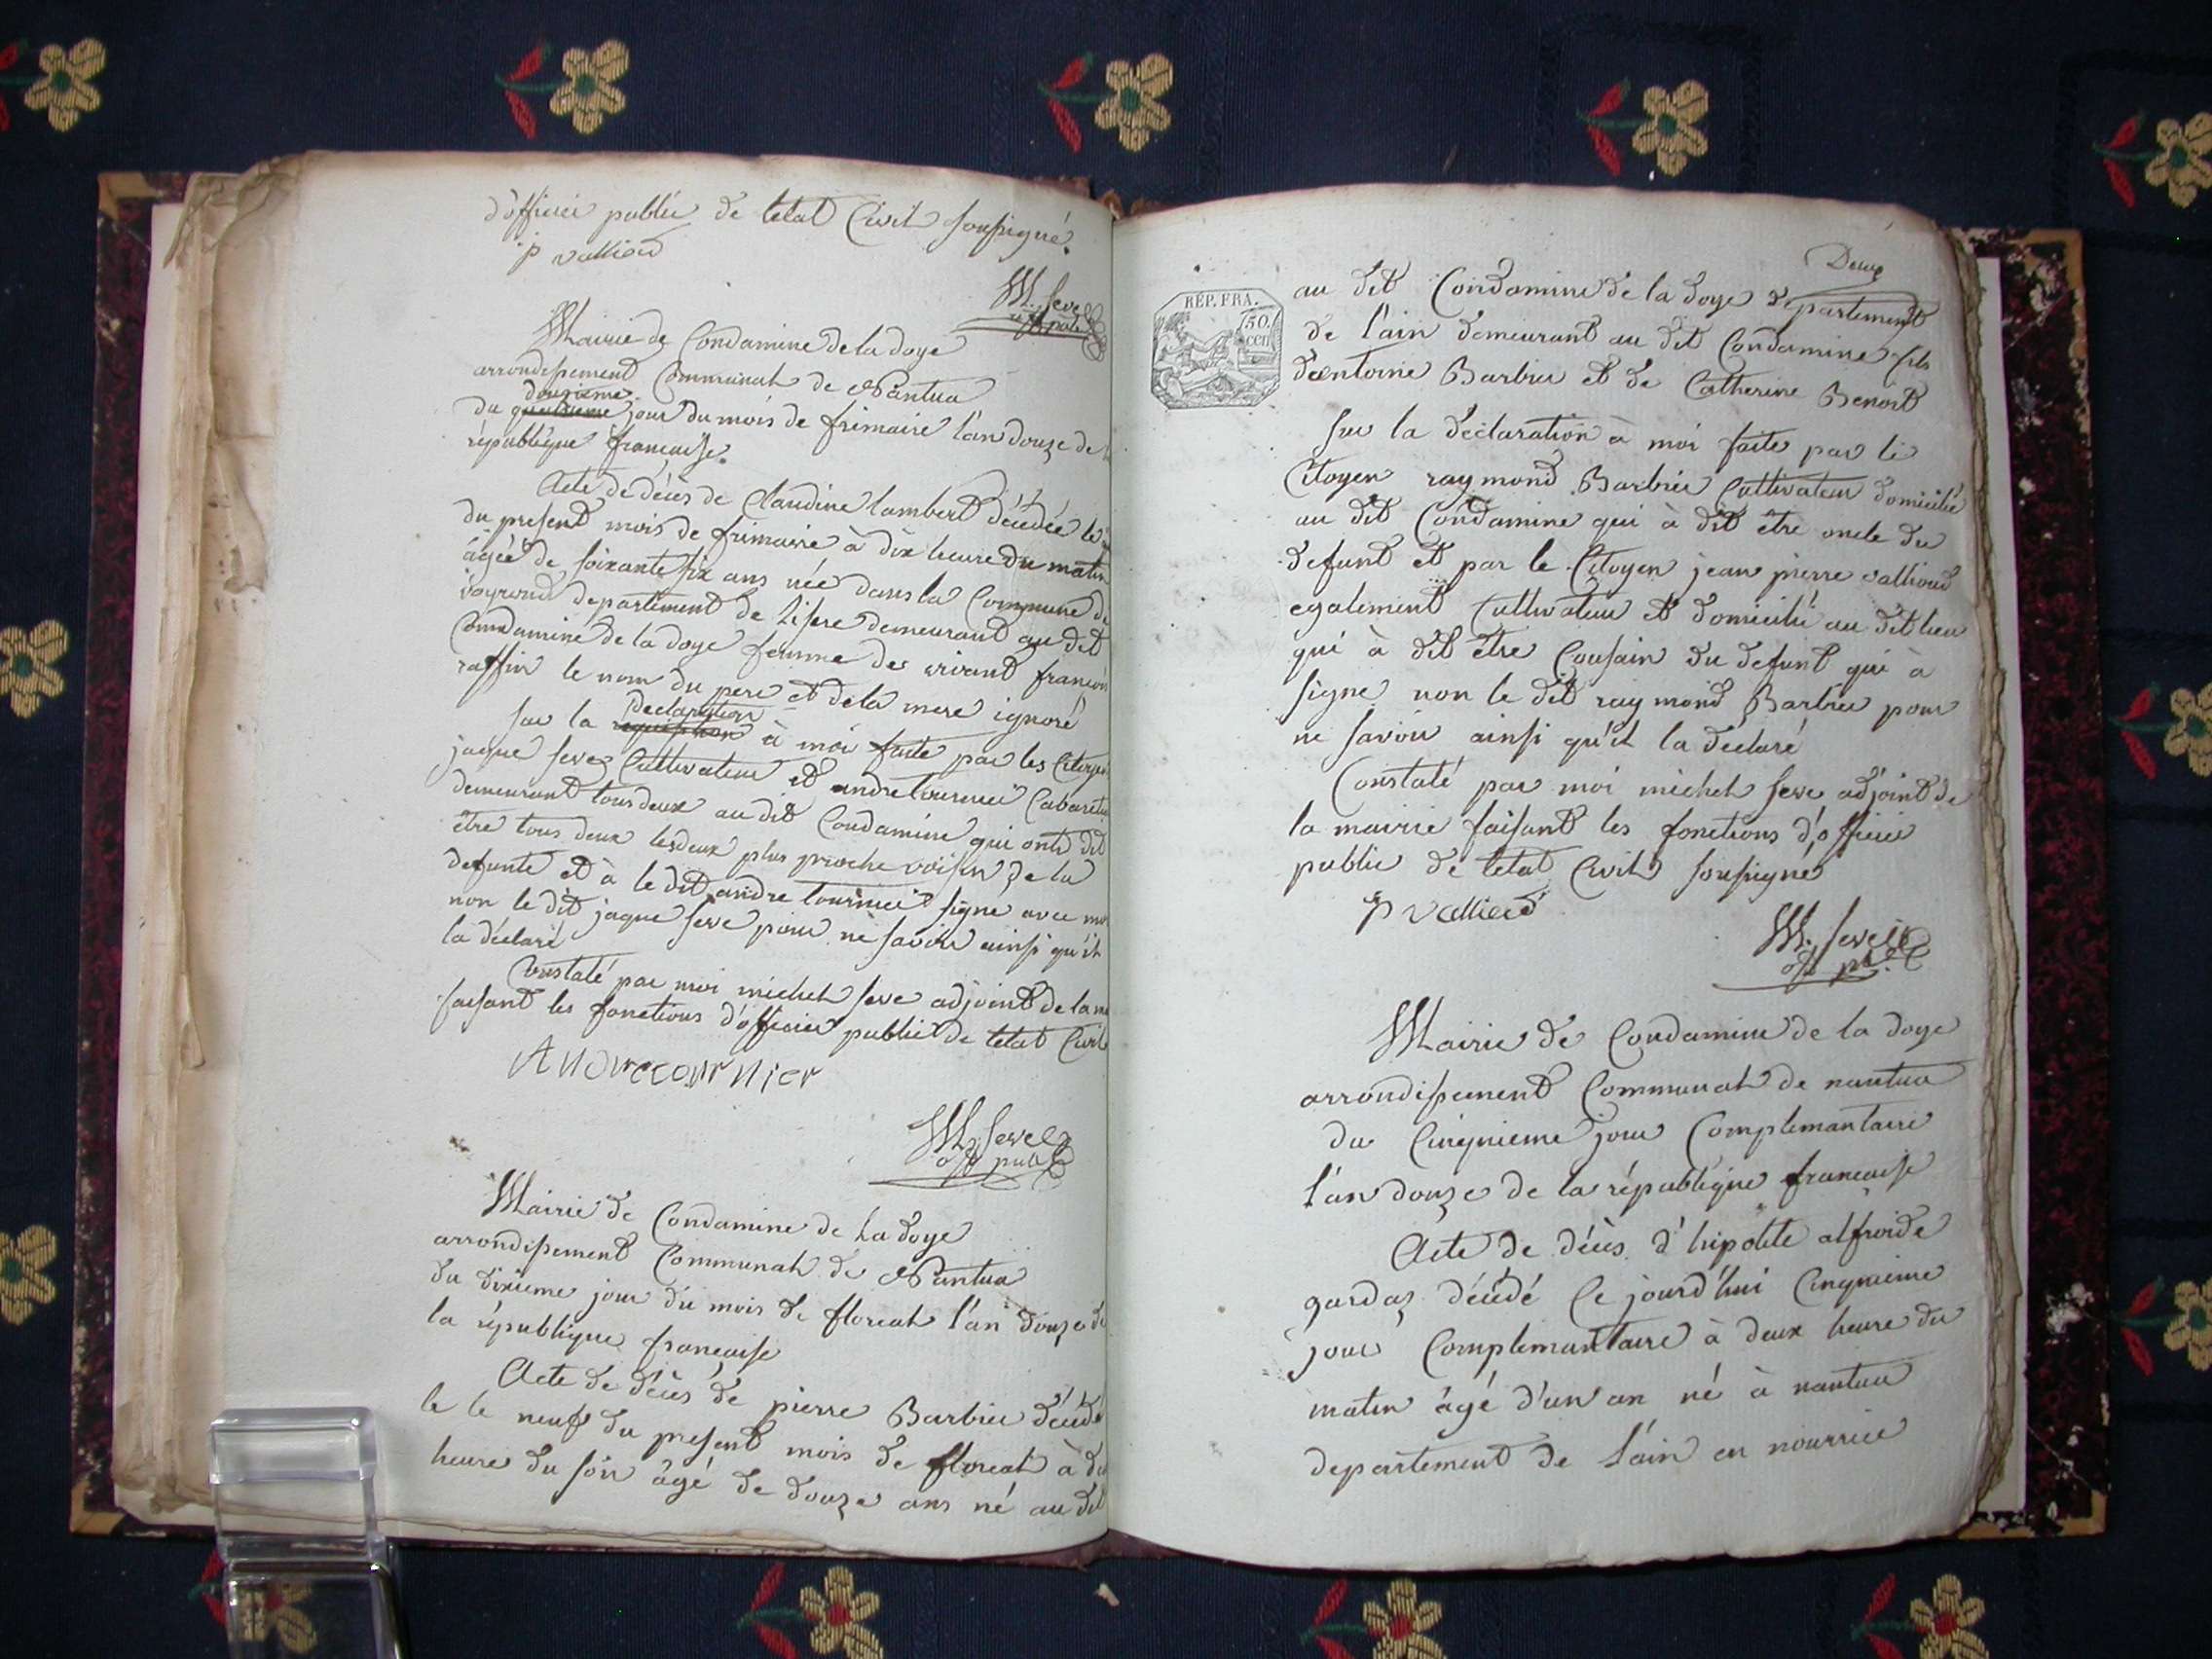 d'officier public de letat Civil soussigné.
p valliod
M. Seve
off public
Mairie de Condamine de la doye
arrondissement Communal de Nantua
douzieme
du jour du mois de frimaire l'an douze de
république française.
Acte de décès de Claudine lambert décédée le
du present mois de frimaire à dix heure du matin
âgée de soixante six ans née dans la Commune de
departement de Lisere demeurant au dit
Condamine de la doye femme de vivant françois
raffin le nom du pere et de la mere ignoré
Declaration
sur la requisition à moi faite par les Citoyens
jaque seve Cultivateur et andre tournier Cabaretier
demeurant tous deux au dit Condamine qui onts dit
être tous deux les deux plus proche voisin de la
defunte et à le dit andre tournier signe avec moi
non le dit jaque seve pour ne savoir ainsi qu'il
la déclaré
Constaté par moi michel seve adjoint de la
faisant les fonctions d'officier public de letat Civil
Andrecournier
M. Seve
off public
Mairie de Condamine de La doye
arrondissement Communal de Nantua
du dixieme jour du mois de floreal l'an douze de
la république française
Acte de décès de pierre Barbier décédé
le le neuf du present mois de floreal à
heure du soir âgé de douze ans né au dit
Deux
RÉP. FRA.
50.
CEN
au dit Condamine de la doye departement
de l'ain demeurant au dit Condamine fils
d'entoine Barbier et de Catherine Benoit
sur la déclaration à moi faite par le
Citoyen raymond Barbier Cultivateur domicilié
au dit Condamine qui à dit être oncle du
defunt et par le Citoyen jean pierre valliod
egalement Cultivateur et domicilié au dit lieu
qui à dit être Cousain du defunt qui à
signe non le dit raymond Barbier pour
ne savoir ainsi qu'il la declaré
Constaté par moi michel seve adjoint de
la mairie faisant les fonctions d'officier
public de letat Civil soussigné
p valliod
M. Seve
off public
Mairie de Condamine de la doye
arrondissement Communal de nantua
du Cinquieme jour Complemantaire
l'an douze de la république francaise
Acte de décès d'hipolite alfroide
gardaz décédé Ce jourd'hui Cinquieme
jour Complemantaire à deux heure du
matin âgé d'un an né à nantua
departement de l'ain en nourrice